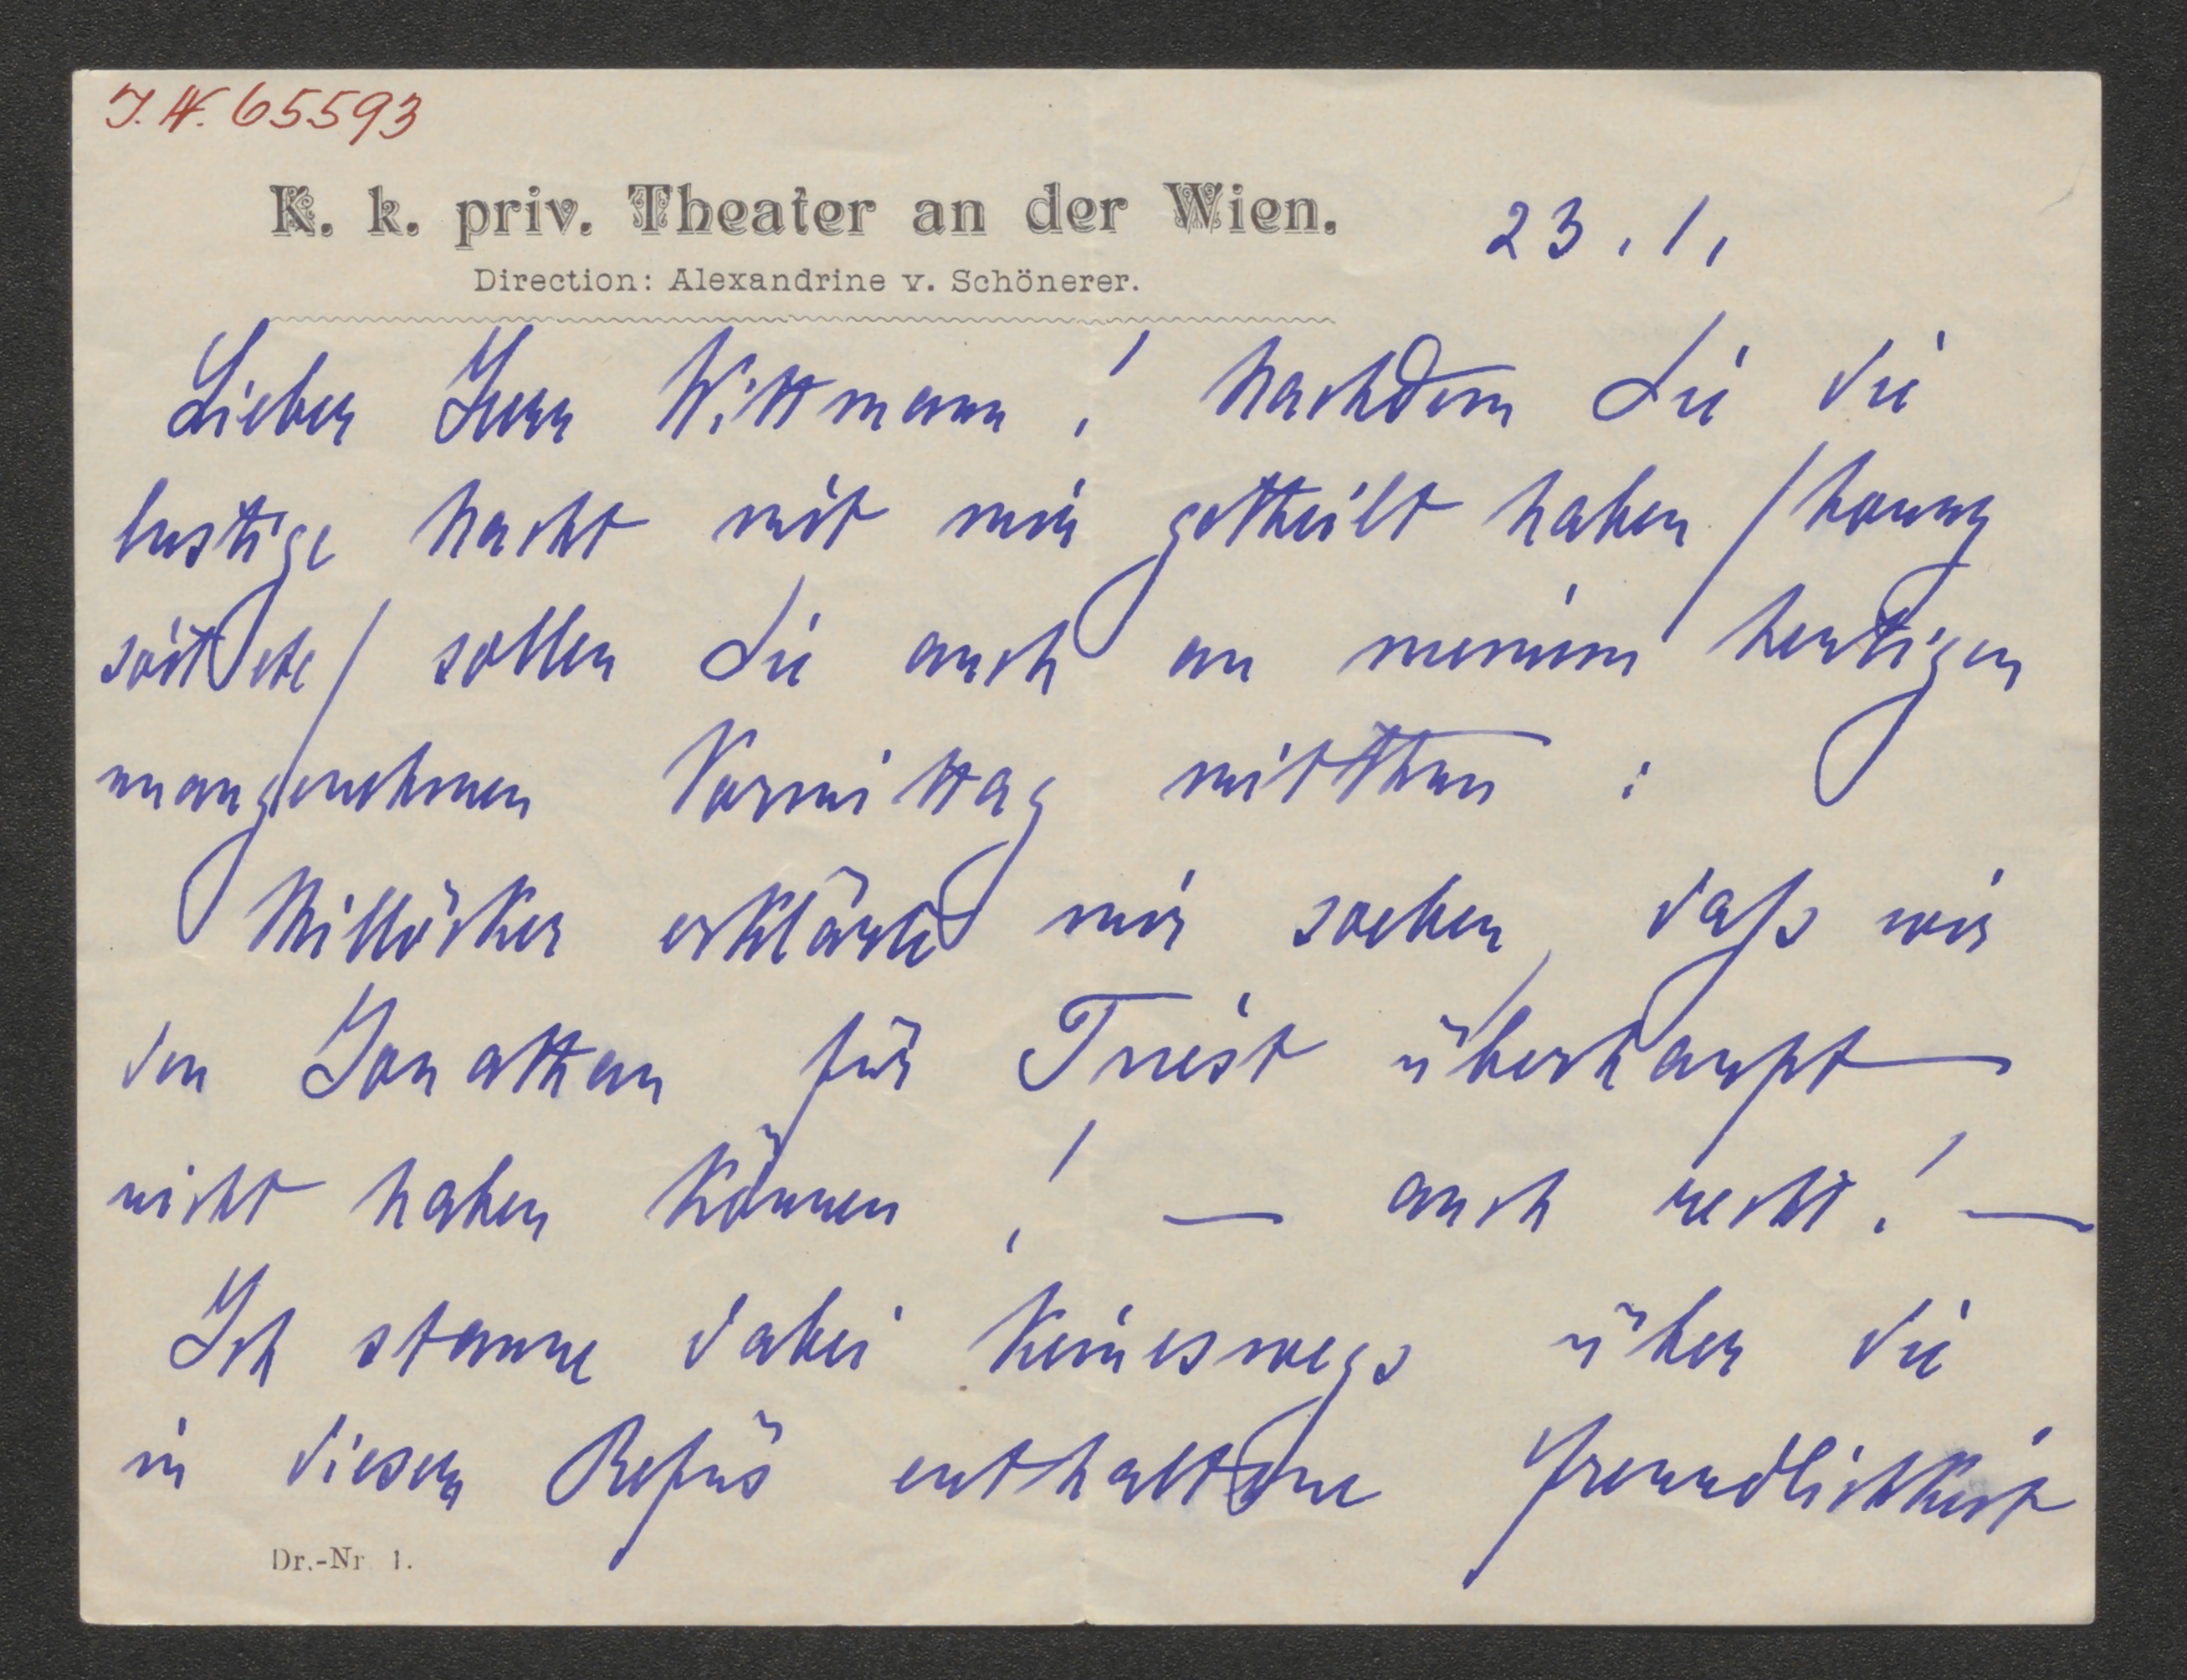 I.N. 65593
K. k. priv. Theater an der Wien.
23.1.
Direction: Alexandrine v. Schönerer.
Lieber Herr Wittmann! Nachdem Sie die
lustige Nacht mit mir getheilt haben /honny
soit etc/ sollen Sie auch an meinem heutigen
unangenehmen Vormittag mitthun:
Millöcker erklärte mir soeben, daß wir
den Jonathan für Triest überhaupt
nicht haben können! — auch recht! —
Ich staune dabei keineswegs über die
in diesem Refus enthaltene Freundlichkeit
Dr.-Nr 1.